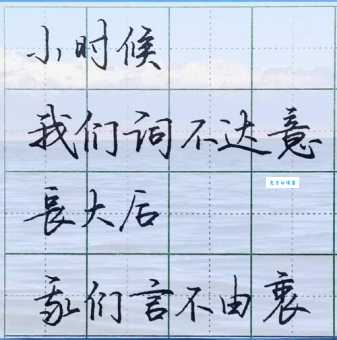 小时候
我们词不达意
長大后
我们言不由衷